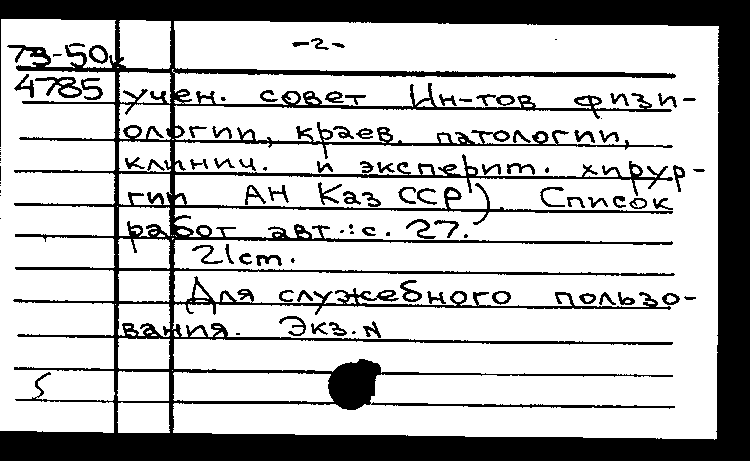 -2-
73-50к
4785
учен. совет Ин-тов физи-
ологии, краев. патологии,
клинич. и эксперим. хирур-
гии АН Каз ССР). Список
работ авт.: с. 27.
21cm.
Для служебного пользо-
вания. Экз. N
5